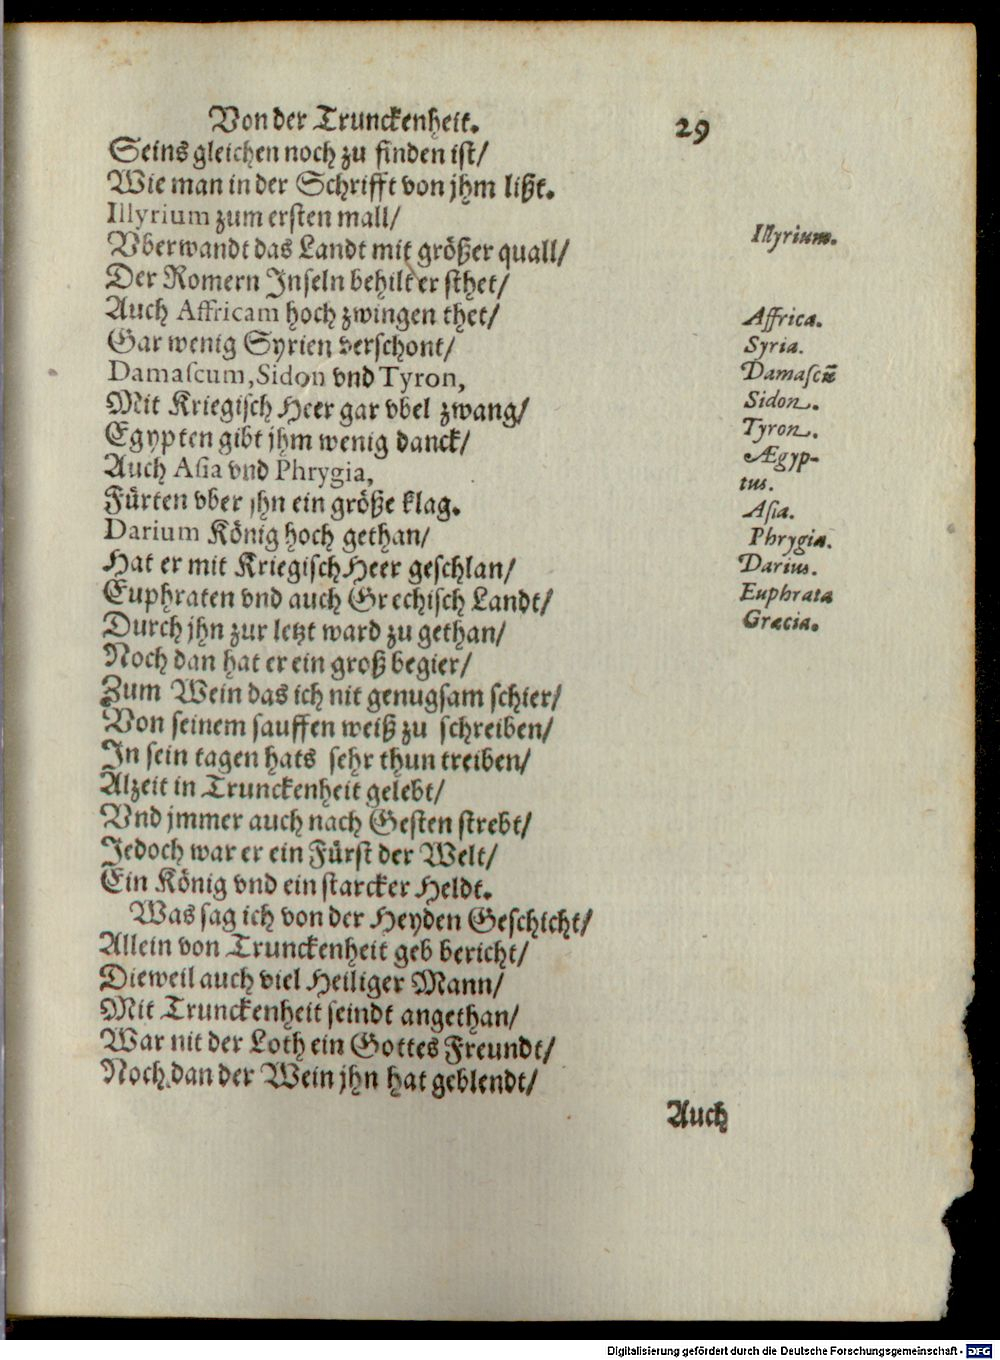 Von der Trunckenheit. 29
Seins gleichen noch zu finden ist/
Wie man in der Schrifft von jhm lißt.
Illyrium zum ersten mall/
Vberwandt das Landt mit größer quall/
Der Romern Inseln behilt er sthet/
Auch Affricam hoch zwingen thet/
Gar wenig Syrien verschont/
Damascum, Sidon vnd Tyron,
Mit Kriegisch Heer gar vbel zwang/
Egypten gibt jhm wenig danck/
Auch Asia vnd Phrygia,
Fürten vber jhn ein größe klag.
Darium König hoch gethan/
Hat er mit Kriegisch Heer geschlan/
Euphraten vnd auch Grechisch Landt/
Durch jhn zur letzt ward zu gethan/
Noch dan hat er ein groß begier/
Zum Wein das ich nit genugsam schier/
Von seinem sauffen weiß zu schreiben/
In sein tagen hats sehr thun treiben/
Alzeit in Trunckenheit gelebt/
Vnd jmmer auch nach Gesten strebt/
Jedoch war er ein Fürst der Welt/
Ein König vnd ein starcker Heldt.
Was sag ich von der Heyden Geschicht/
Allein von Trunckenheit geb bericht/
Dieweil auch viel Heiliger Mann/
Mit Trunckenheit seindt angethan/
War nit der Loth ein Gottes Freundt/
Noch dan der Wein jhn hat geblendt/
Auch
Illyrium.
Affrica.
Syria.
Damascū
Sidon.
Tyron.
Ægyp-
tus.
Asia.
Phrygia.
Darius.
Euphrata
Græcia.
Digitalisierung gefördert durch die Deutsche Forschungsgemeinschaft - DFG